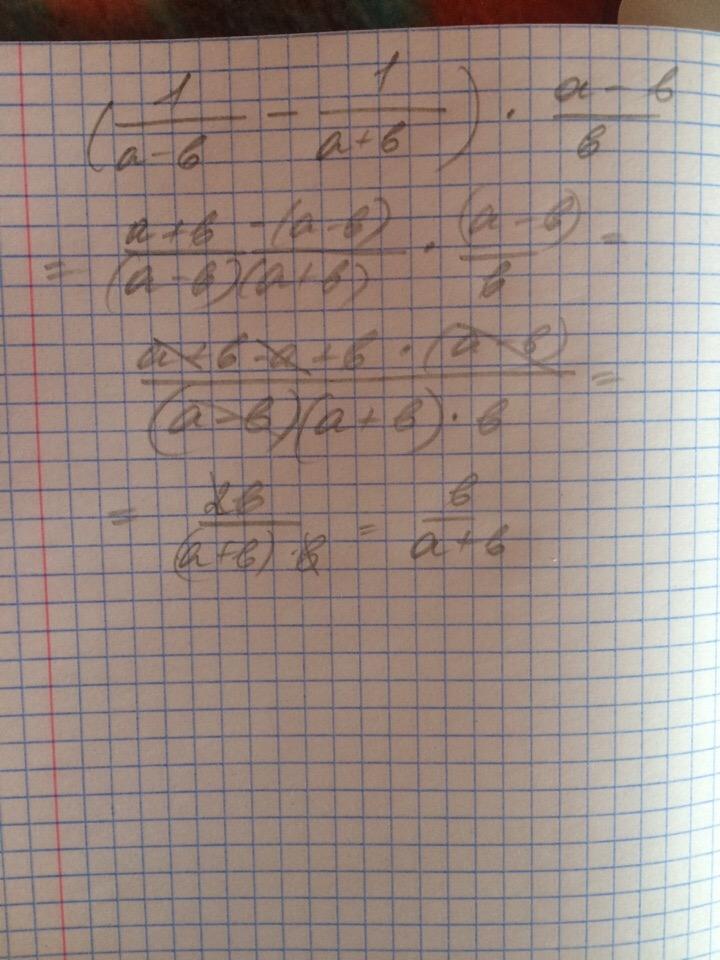 (1/(a-в) - 1/(a+в)) · (a-в)/в
= (a+в -(a-в))/((a-в)(a+в)) · (a-в)/в =
(a+в-a+в · (a-в))/((a-в)(a+в)·в) =
= 2в/((a+в)·в) = в/(a+в)